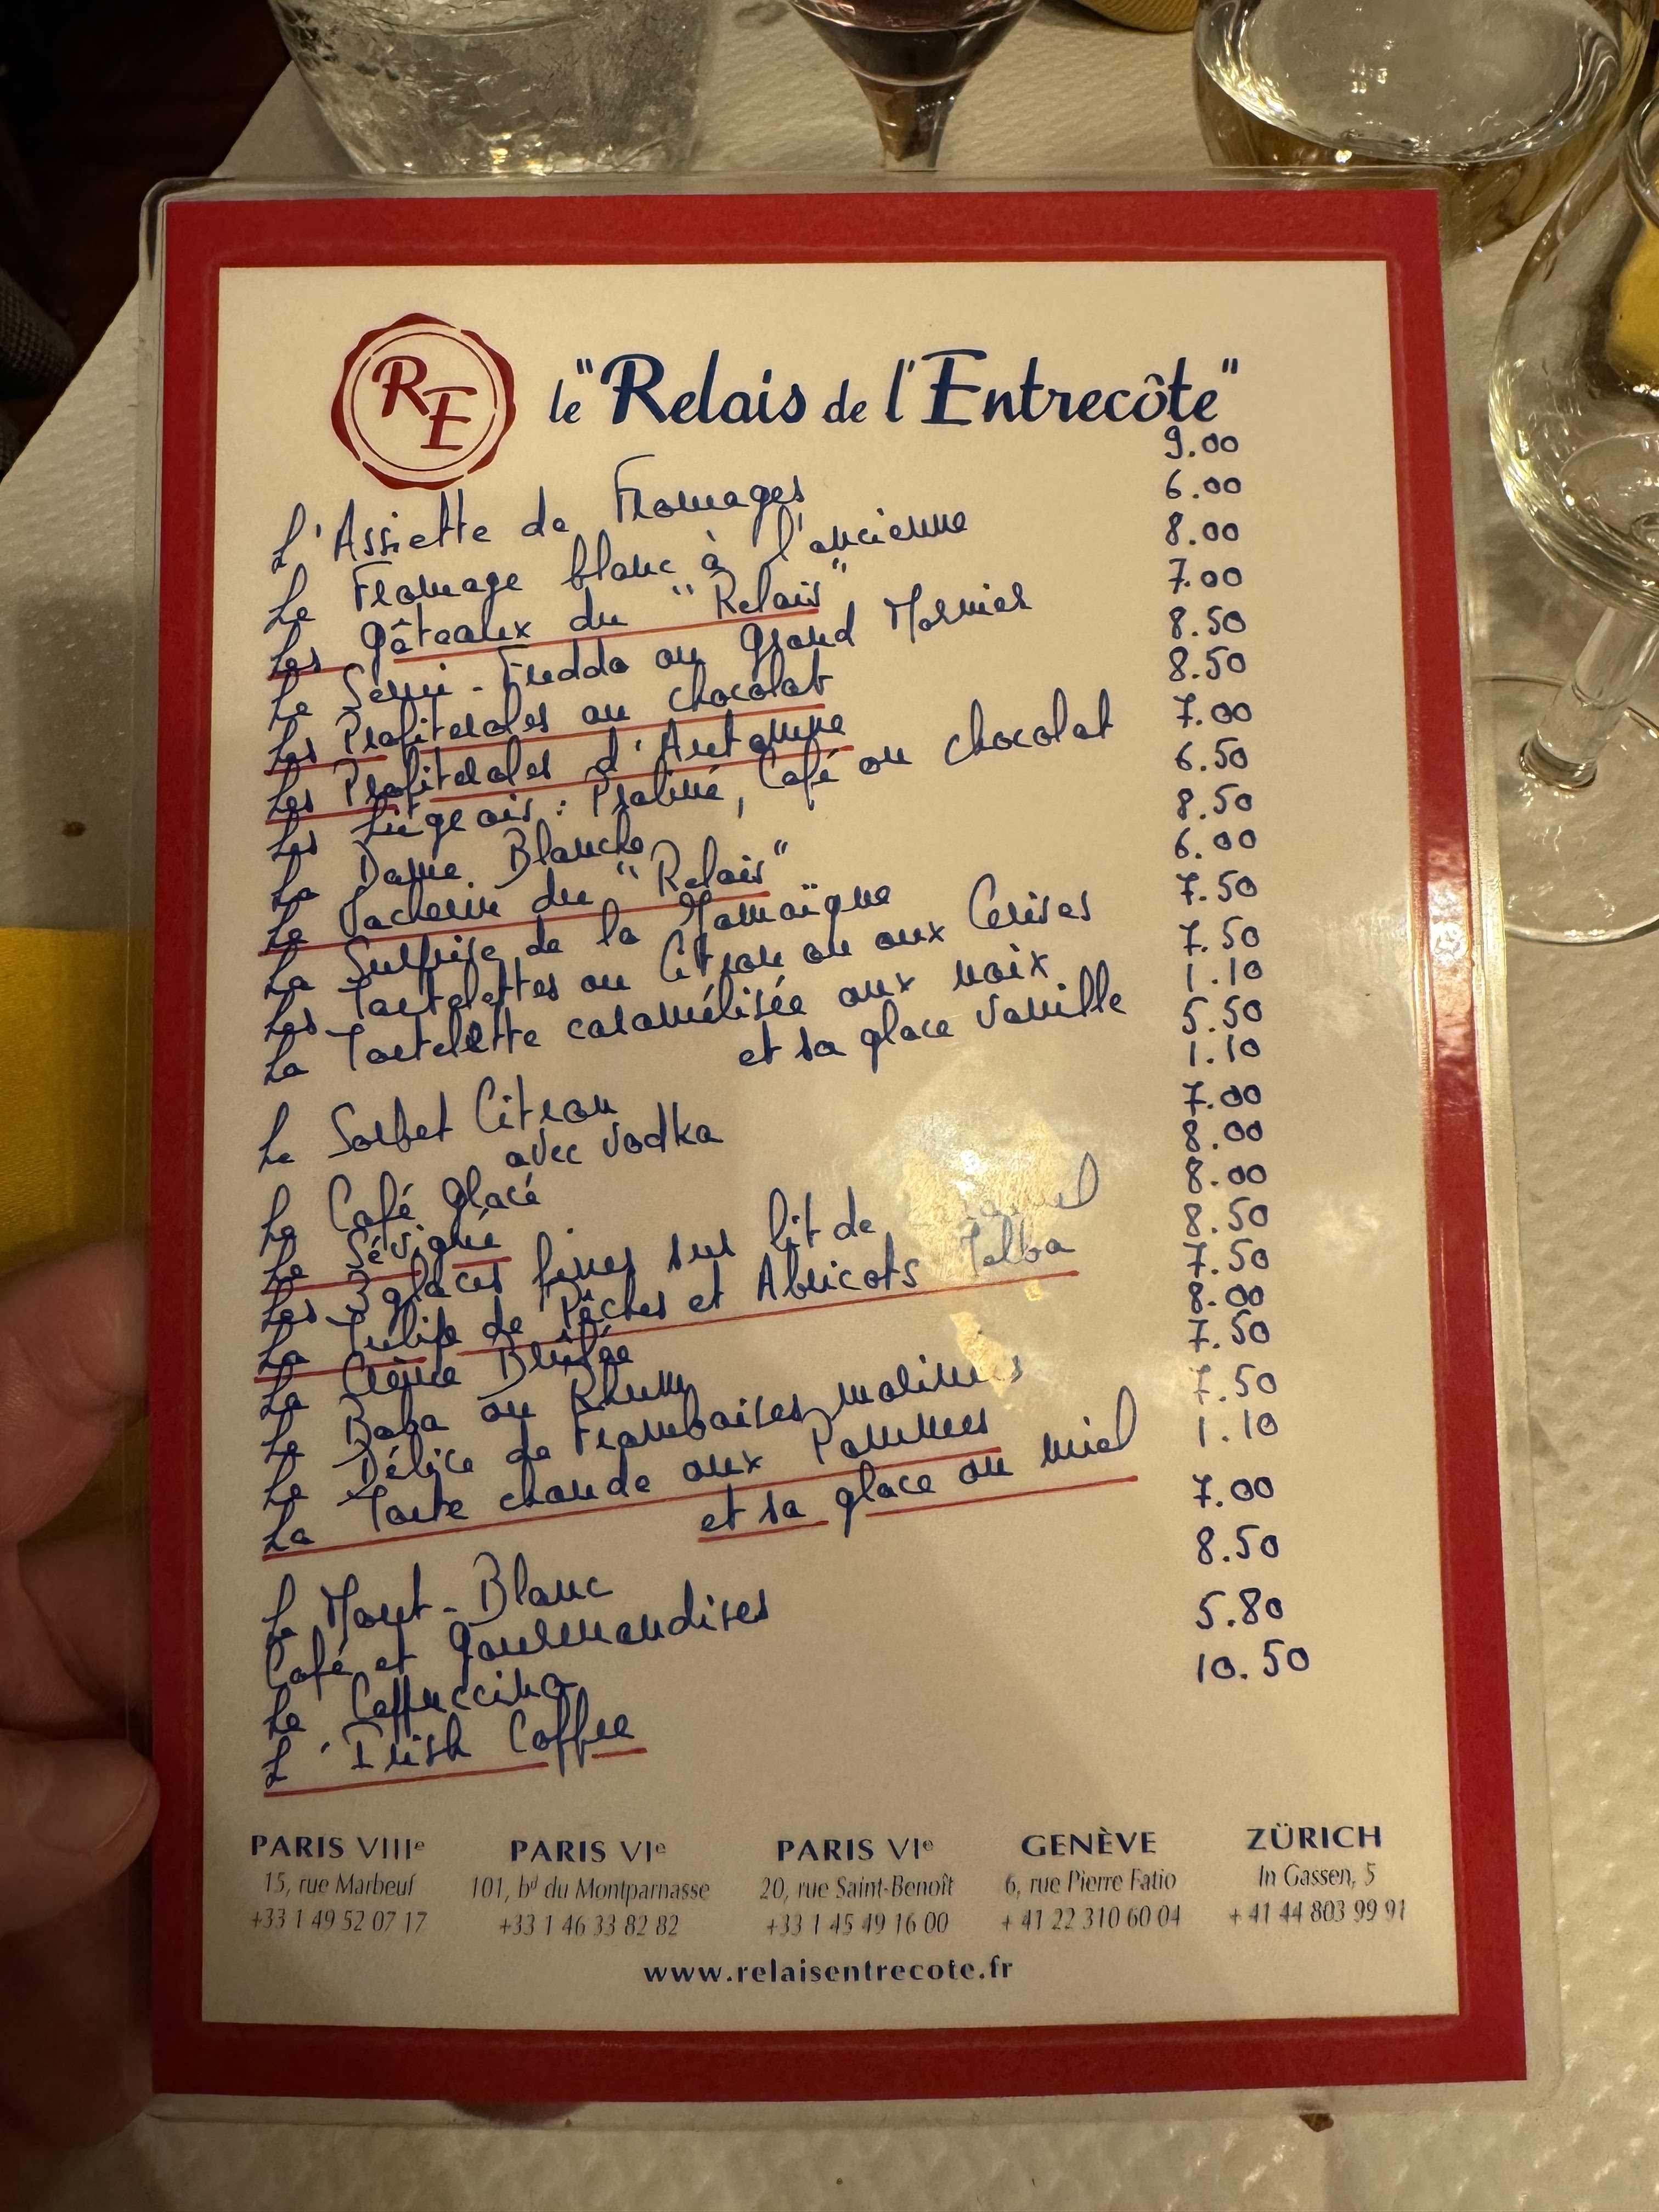 RE
le "Relais de l'Entrecôte"
L'Assiette de Fromages 9.00
Le Fromage blanc à l'ancienne 6.00
Les gâteaux du "Relais" 8.00
Le Semi-Freddo au Grand Marnier 7.00
Les Profiteroles au chocolat 8.50
Les Profiteroles d'Automne 8.50
Les Liégeois : Praliné, Café ou chocolat 7.00
La Dame Blanche 6.50
Le Vacherin du "Relais" 8.50
La Surprise de la Jamaïque 6.00
Les Tartelettes au Citron ou aux Cerises 7.50
La Tartelette caramélisée aux noix 7.50
et sa glace vanille 1.10
Le Sorbet Citron 5.50
avec vodka 1.10
Le Café glacé 7.00
Le Sévigné 8.00
Les 3 glaces fines sur lit de 8.00
La Tulipe de Pêches et Abricots Melba 8.50
La Crème Brûlée 7.50
Le Baba au Rhum 8.00
Le Délice de Framboises malines 7.50
La Tarte chaude aux Pommes 7.50
et sa glace au miel 1.10
Le Mont-Blanc 7.00
Café et gourmandises 8.50
Le Cappuccino 5.80
L'Irish Coffee 10.50
PARIS VIIIe PARIS VIe PARIS VIe GENÈVE ZÜRICH
15, rue Marbeuf 101, bd du Montparnasse 20, rue Saint-Benoît 6, rue Pierre Fatio In Gassen, 5
+33 1 49 52 07 17 +33 1 46 33 82 82 +33 1 45 49 16 00 + 41 22 310 60 04 + 41 44 803 99 91
www.relaisentrecote.fr